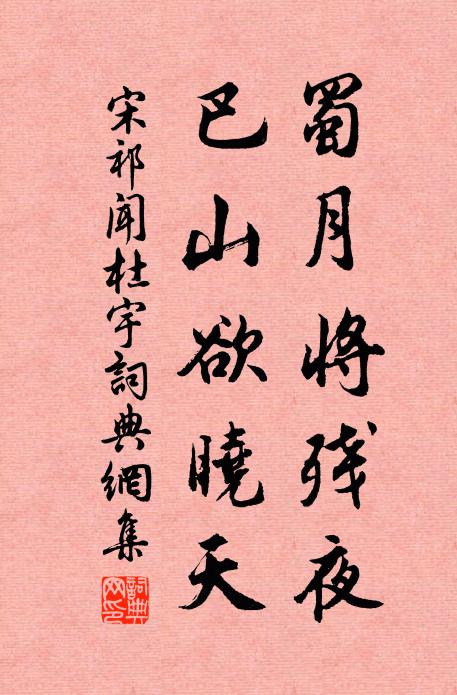 蜀月将残夜
巴山欲曉天
宋祁闻杜宇詞典網集
詞典网印